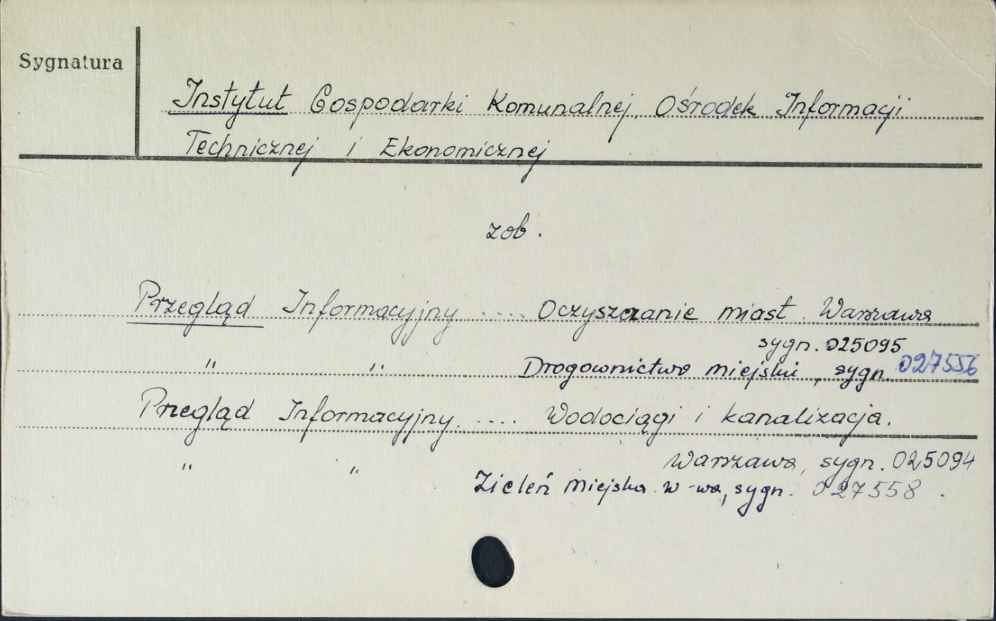 Sygnatura
Instytut Gospodarki Komunalnej, Ośrodek Informacji
Technicznej i Ekonomicznej
zob.
Przegląd Informacyjny .... Oczyszczanie miast. Warszawa
sygn. 025095
" " Drogownictwo miejskie, sygn. 027556
Przegląd Informacyjny .... Wodociągi i kanalizacja.
Warszawa, sygn. 025094
" " Zieleń Miejska. W-wa, sygn. 027558.